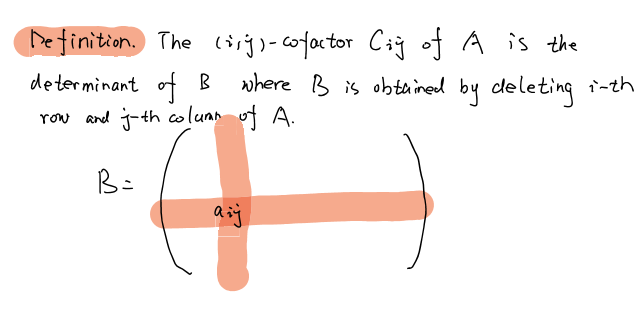 Definition. The (i,j)-cofactor Cij of A is the
determinant of B where B is obtained by deleting i-th
row and j-th column of A.
B =
aij